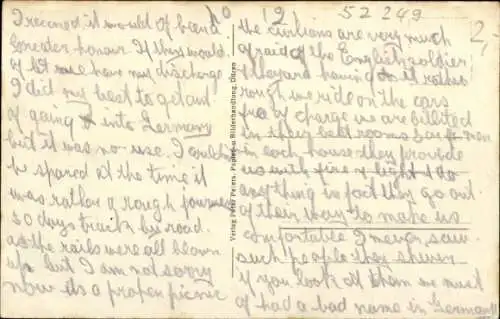 I reconed it would of been a
Greater honour. If they would
of let me have my discharge
I did my best to get out
of going into Germany
but it was no use. I couldnt
be spared at the time it
was rather a rough journey
30 days track by road.
as the rails were all blown
up but I am not sorry
now its a proper picnic
Verlag Peter Peters, Papier- u. Bilderhandlung, Düren
12
52249
the civilians are very much
afraid of the English soldier
having it rather
rough we ride on the cars
free of charge we are billeted
in their bed rooms four men
in each house they provide
us with fire & light & do
anything in fact they go out
of their way to make us
comfortable I never saw
such people they shiver
if you look at them we must
of had a bad name in Germany